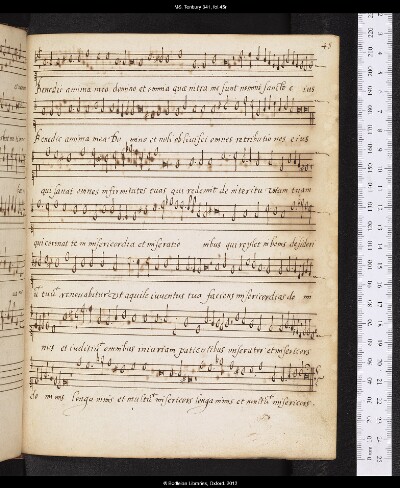 MS. Tenbury 341, fol.45r
45
Benedic anima mea domino et omnia quæ intra me sunt nomini sancto e ius
Benedic anima mea Do mino et noli oblivisci omnes retributio nes eius
qui sanat omnes infirmitates tuas qui redemit de interitu vitam tuam
qui coronat te in misericordia et miseratio nibus qui replet in bonis desideri
ū tuū renovabitur ut aquile iuventus tua faciens misericordias do mi
nus et iuditiū omnibus iniuriam patientibus miserator et misericors
do minus longa nimis et multū misericors longa nimis et multū misericors.
© Bodleian Libraries, Oxford, 2012